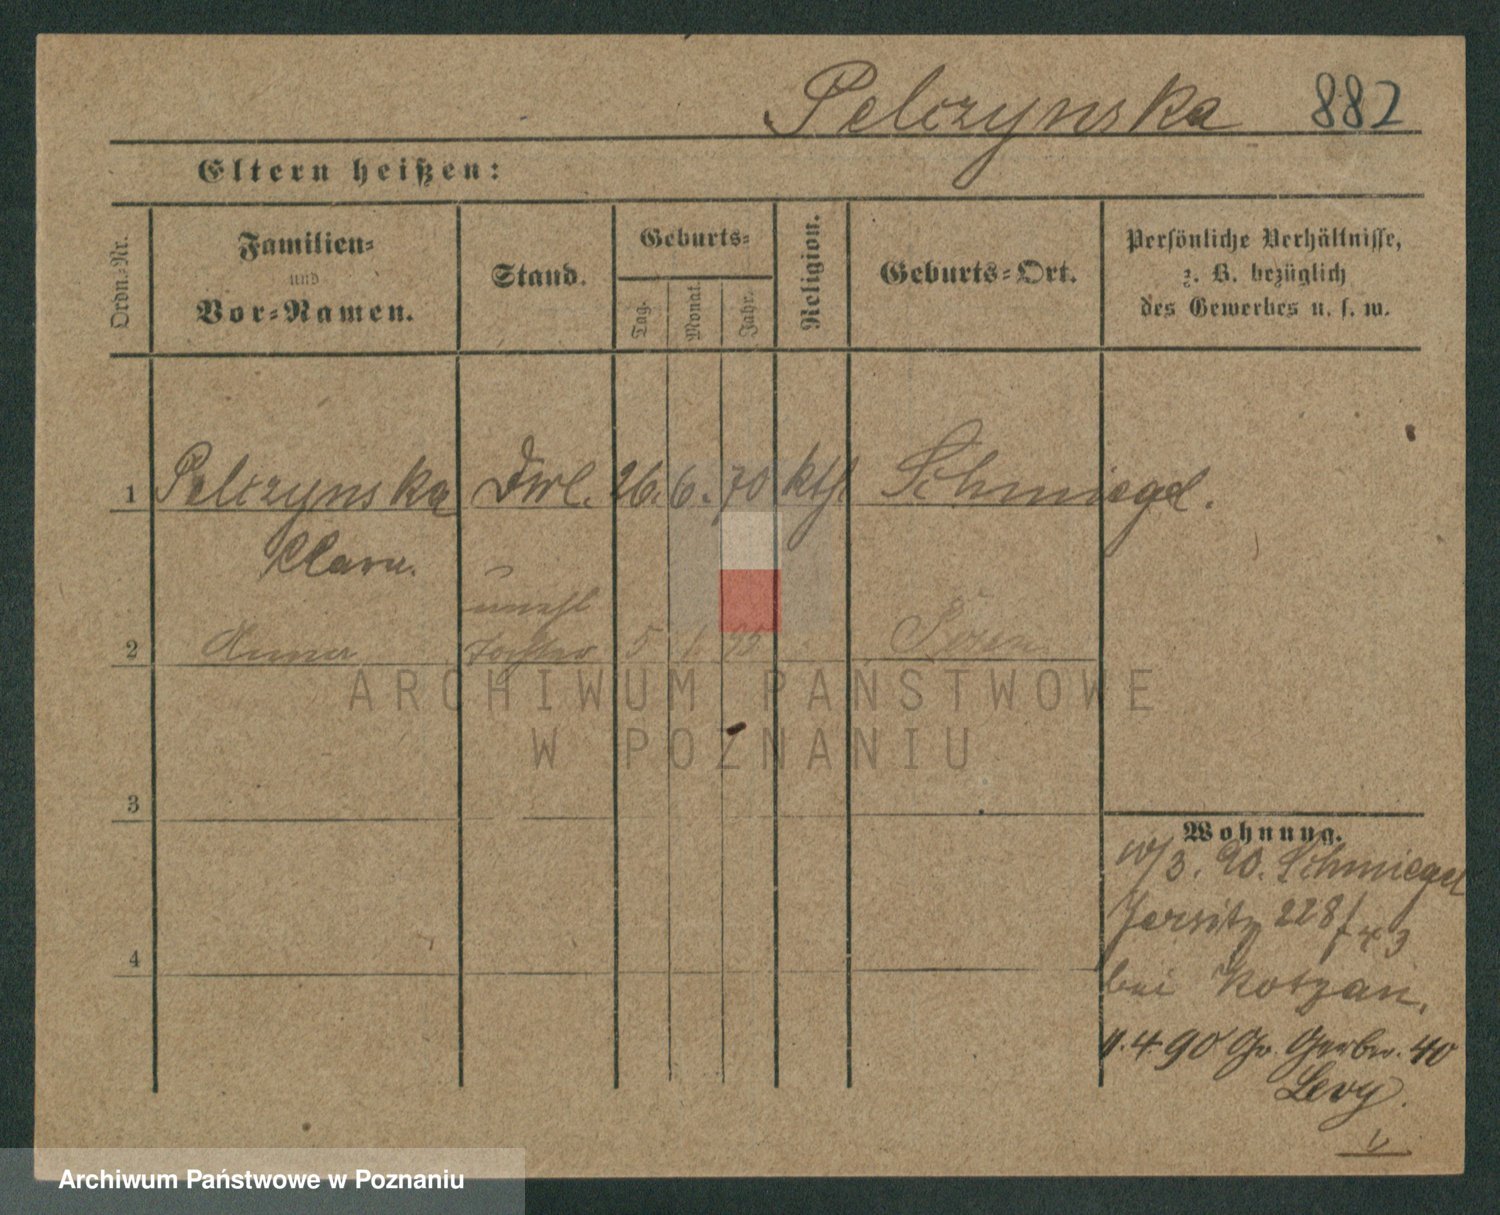 Pelczynska 882
Eltern heißen:
Ordn.-Nr.
Familien-
und
Vor-Namen.
Stand.
Geburts-
Tag.
Monat.
Jahr.
Religion.
Geburts-Ort.
Persönliche Verhältnisse,
z. B. bezüglich
des Gewerbes u. s. w.
1 Pelczynska Drl. 26. 6. 70 kth Schmiegel.
Clara.
unehl
2 Tochter 5 1. 95 Posen
ARCHIWUM PAŃSTWOWE
W POZNANIU
3
Wohnung.
10/3. 90. Schmiegel
Jersitz 228/
4
bei Kotzan.
1.4.90 Gr. Gerber. 40
Levy.
Archiwum Państwowe w Poznaniu